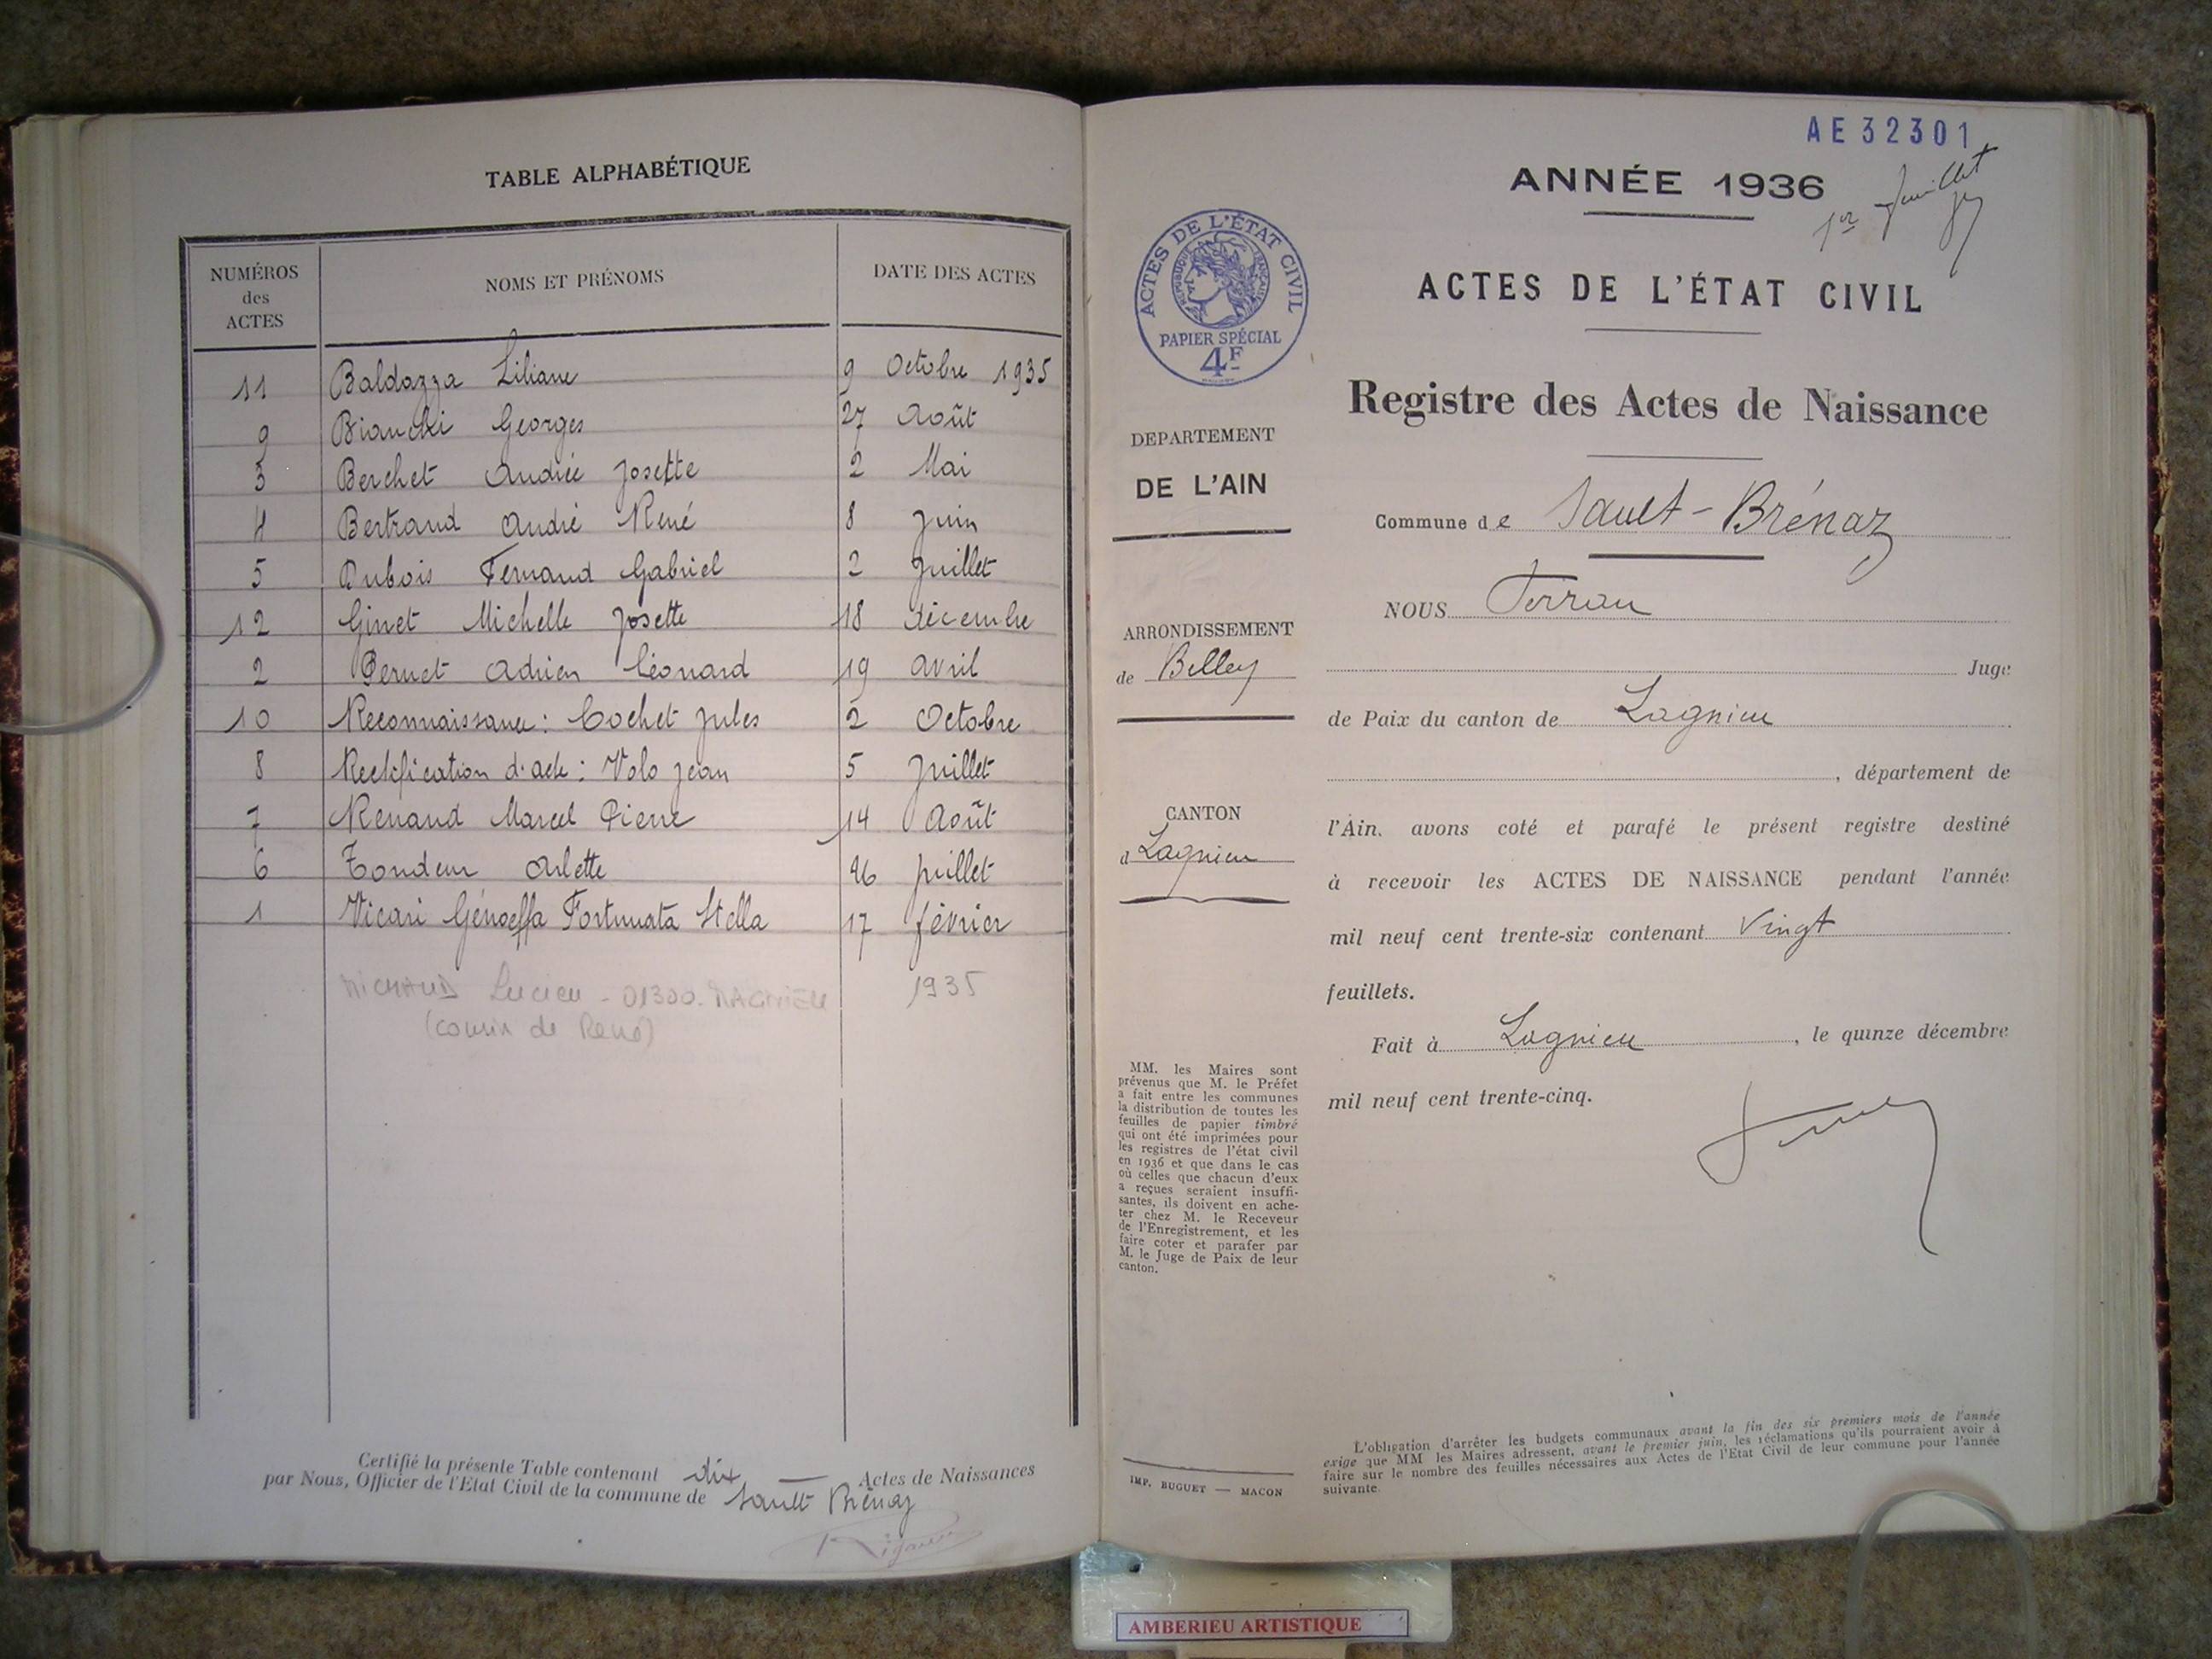 TABLE ALPHABÉTIQUE
NUMÉROS
des
ACTES
NOMS ET PRÉNOMS
DATE DES ACTES
11 Baldazza Liliane 9 Octobre 1935
9 Bianchi Georges 27 Août
3 Berchet Andrée Josette 2 Mai
4 Bertrand André René 8 Juin
5 Dubois Fernand Gabriel 2 Juillet
12 Ginet Michelle Josette 18 décembre
2 Pernet Adrien Léonard 19 avril
10 Reconnaissance : Cochet Jules 2 Octobre
8 Rectification d'acte : Volo Jean 5 Juillet
7 Renand Marcel Pierre 14 Août
6 Tondeur Arlette 26 juillet
1 Vicari Génoeffa Fortunata Stella 17 février
MICHAUD Lucien - 01300. 1935
(cousin de René)
Certifié la présente Table contenant dix — Actes de Naissances
par Nous, Officier de l'Etat Civil de la commune de Sault Brénaz
AE 32301
ANNÉE 1936
1er feuillet
ACTES DE L'ÉTAT CIVIL
RÉPUBLIQUE FRANÇAISE
PAPIER SPÉCIAL
4F
ACTES DE L'ÉTAT CIVIL
Registre des Actes de Naissance
DEPARTEMENT
DE L'AIN
Commune de Sault-Brénaz
ARRONDISSEMENT
de Belley
NOUS Ferran
Juge
de Paix du canton de Lagnieu
, département de
CANTON
d Lagnieu
l'Ain. avons coté et parafé le présent registre destiné
à recevoir les ACTES DE NAISSANCE pendant l'année
mil neuf cent trente-six contenant Vingt
feuillets.
Fait à Lagnieu, le quinze décembre
mil neuf cent trente-cinq.
MM. les Maires sont
prévenus que M. le Préfet
a fait entre les communes
la distribution de toutes les
feuilles de papier timbré
qui ont été imprimées pour
les registres de l'état civil
en 1936 et que dans le cas
où celles que chacun d'eux
a reçues seraient insuffi-
santes, ils doivent en ache-
ter chez M. le Receveur
de l'Enregistrement, et les
faire coter et parafer par
M. le Juge de Paix de leur
canton.
IMP. BUGUET — MACON
L'obligation d'arrêter les budgets communaux avant la fin des six premiers mois de l'année
exige que MM les Maires adressent, avant le premier juin, les réclamations qu'ils pourraient avoir à
faire sur le nombre des feuilles nécessaires aux Actes de l'Etat Civil de leur commune pour l'année
suivante.
AMBERIEU ARTISTIQUE